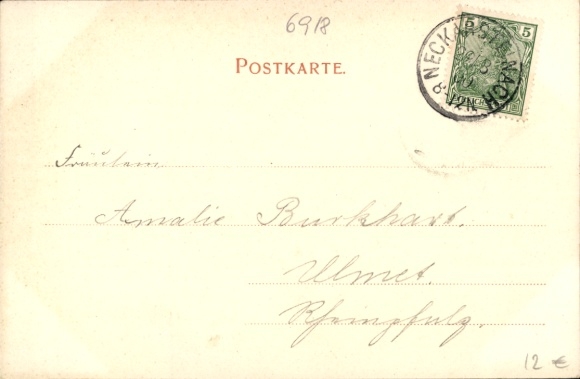 6918
POSTKARTE.
5 5
NECKARSTEINACH
8-12N.
Fräulein
Amalie Burkhart.
Ulmet.
Rheinpfalz.
12 €